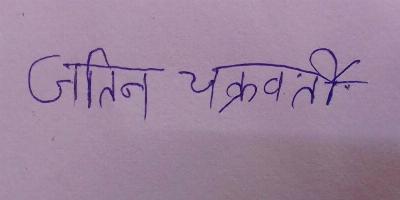 जतिन चक्रवर्ती